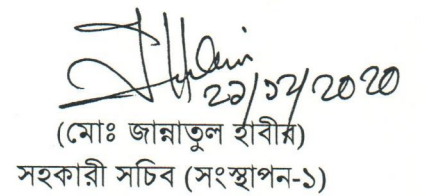 ২১/১২/২০২০
(মোঃ জান্নাতুল হাবীব)
সহকারী সচিব (সংস্থাপন-১)